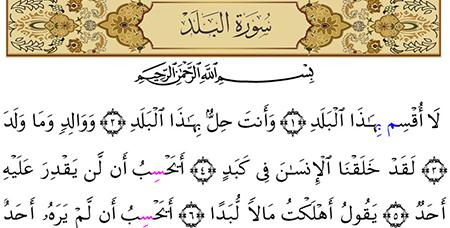 سُورَةُ البَلَدِ
بِسْمِ اللَّهِ الرَّحْمَٰنِ الرَّحِيمِ
لَا أُقْسِمُ بِهَٰذَا الْبَلَدِ ﴿١﴾ وَأَنتَ حِلٌّ بِهَٰذَا الْبَلَدِ ﴿٢﴾ وَوَالِدٍ وَمَا وَلَدَ
﴿٣﴾ لَقَدْ خَلَقْنَا الْإِنسَٰنَ فِي كَبَدٍ ﴿٤﴾ أَيَحْسِبُ أَن لَّن يَقْدِرَ عَلَيْهِ
أَحَدٌ ﴿٥﴾ يَقُولُ أَهْلَكْتُ مَالًا لُّبَدًا ﴿٦﴾ أَيَحْسِبُ أَن لَّمْ يَرَهُ أَحَدٌ